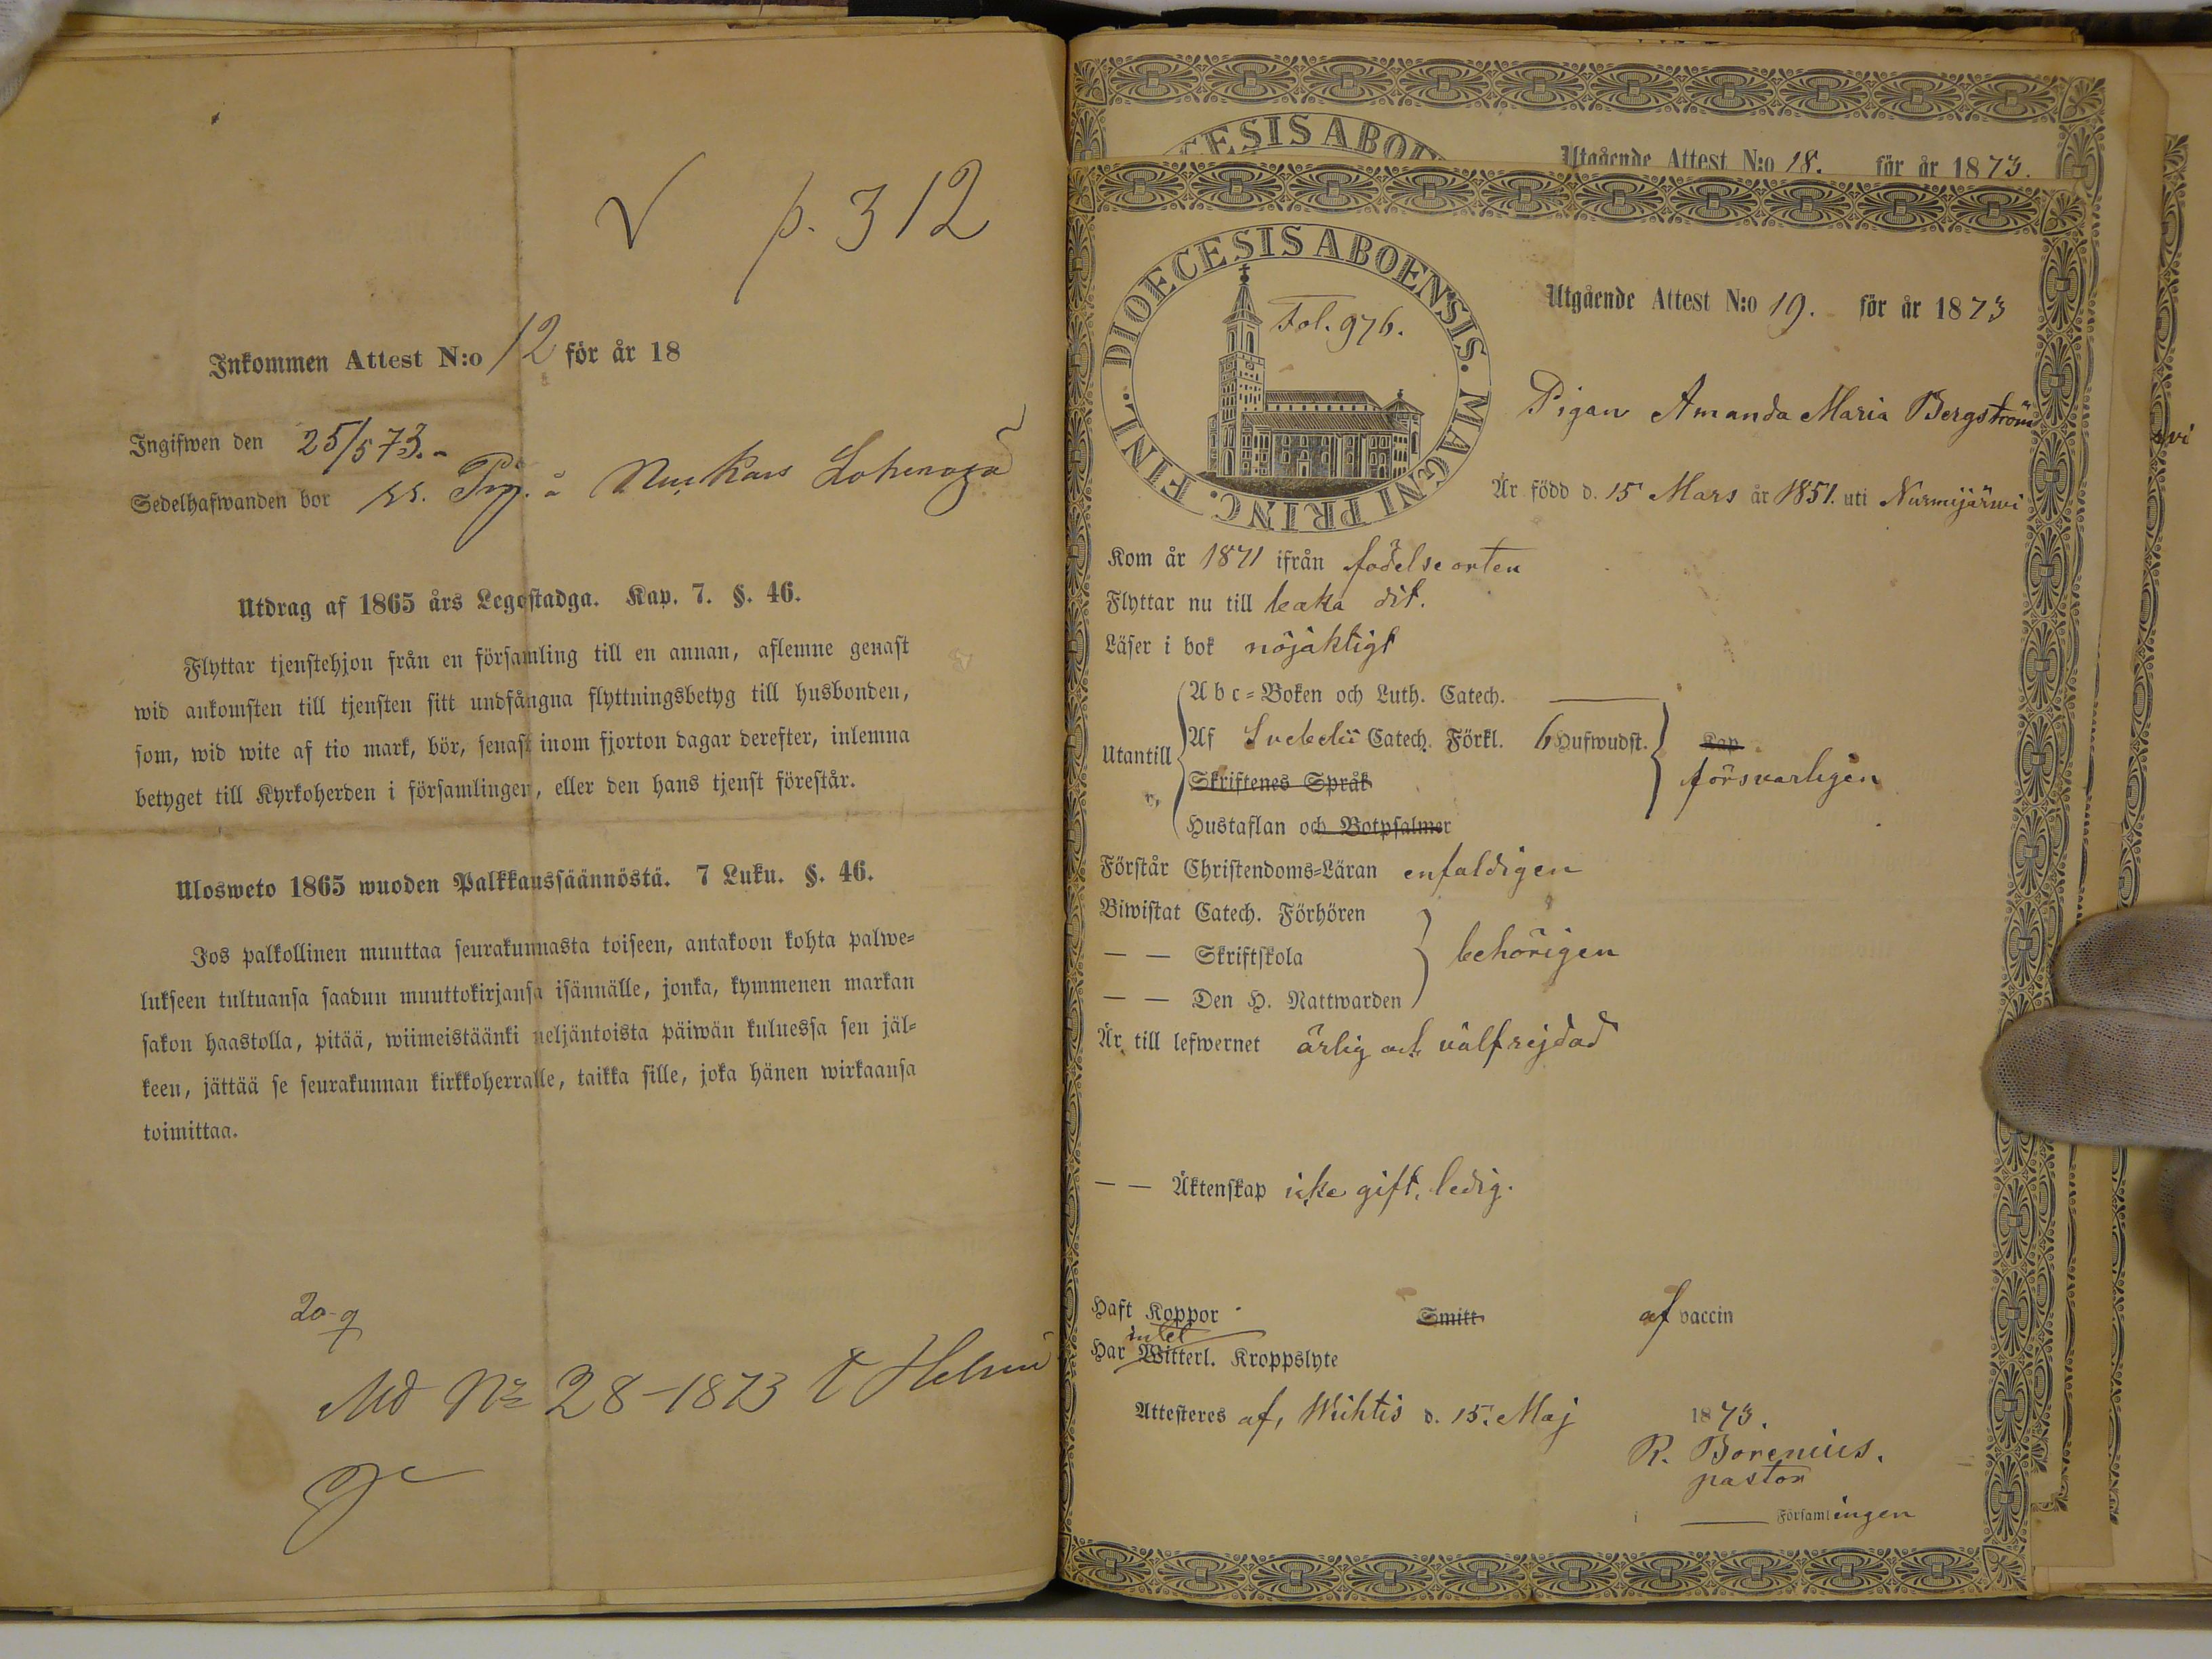 √ p. 312
Inkommen Attest N:o 12 för år 18
Ingifwen den 25/5 73.
Sedelhafwanden bor
Utdrag af 1865 års Legostadga. Kap. 7. §. 46.
Flyttar tjenstehjon från en församling till en annan, aflemne genast
wid ankomsten till tjensten sitt undfångna flyttningsbetyg till husbonden,
som, wid wite af tio mark, bör, senast inom fjorton dagar derefter, inlemna
betyget till Kyrkoherden i församlingen, eller den hans tjenst förestår.
Ulosweto 1865 wuoden Palkkaussäännöstä. 7 Luku. §. 46.
Jos palkollinen muuttaa seurakunnasta toiseen, antakoon kohta palwe=
lukseen tultuansa saadun muuttokirjansa isännälle, jonka, kymmenen markan
sakon haastolla, pitää, wiimeistäänki neljäntoista päiwän kuluessa sen jäl=
keen, jättää se seurakunnan kirkkoherralle, taikka sille, joka hänen wirkaansa
toimittaa.
20-9
Md No 28-1873
Utgående Attest N:o 18. för år 1873.
DIOECESIS ABOENSIS. MAGNI PRINC. FINL.
Fol. 976.
Utgående Attest N:o 19. för år 1873
Pigan Amanda Maria Bergström
Är född d. 15 Mars år 1851. uti Nurmijärwi
Kom år 1871 ifrån födelseorten
Flyttar nu till baka dit.
Läser i bok nöjaktigt
Utantill
Abc=Boken och Luth. Catech.
Af Svebelii Catech. Förkl. 6 Hufwudst. Kap
Skriftenes Språk
Hustaflan och Botpsalmer
försvarligen
Förstår Christendoms=Läran enfaldigen
Biwistat Catech. Förhören
— — Skriftskola behörigen
— — Den H. Nattwarden
Är till lefwernet ärlig och välfrejdad
— — Äktenskap icke gift, ledig.
Haft Koppor Smitt af vaccin
intet
Har Witterl. Kroppslyte
Attesteres af, Wichtis d. 15. Maj 1873.
R. Borenius.
pastor
i Församlingen